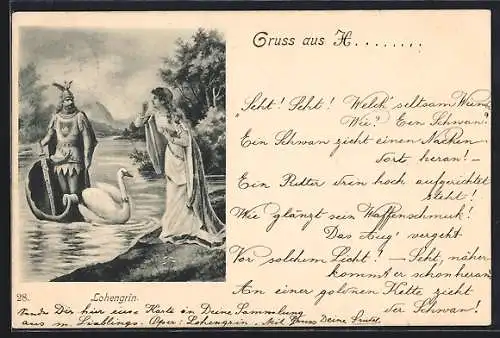 Gruss aus H........
"Seht! Seht! Welch' seltsam Wunder
Wie? Ein Schwan?
Ein Schwan zieht einen Nachen
dort heran! –
Ein Ritter drin hoch aufgerichtet
steht!
Wie glänzt sein Waffenschmuk!
Das Aug' vergeht
Vor solchem Licht! – Seht, näher
kommt er schon heran
An einer goldnen Kette zieht
der Schwan!
28. Lohengrin.
Sende Dir hier eine Karte in Deine Sammlung
aus m. Lieblings-Oper: Lohengrin. Mit Gruss Deine